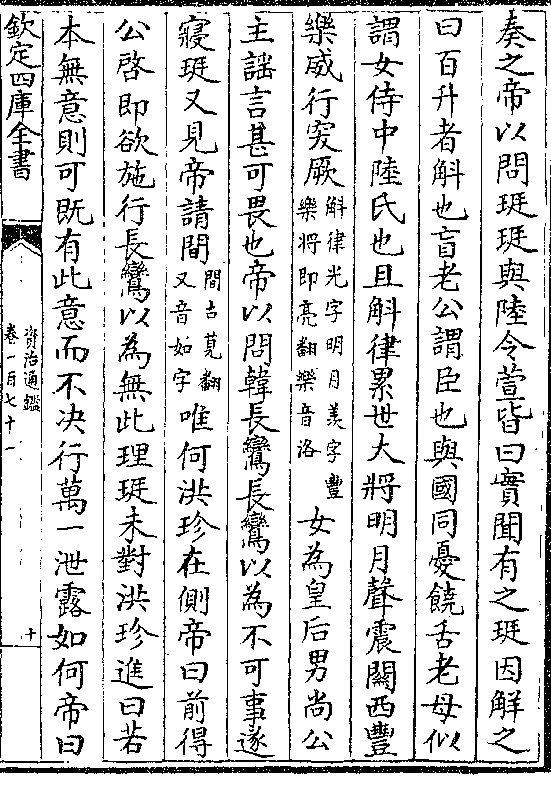 奏之帝以問珽珽與陸令萱皆曰實聞有之珽因解之
曰百升者斛也盲老公謂臣也與國同憂饒舌老母似
謂女侍中陸氏也且斛律累世大將明月聲震關西豐
樂威行突厥斛律光字明月羨字豐樂將即亮翻樂音洛女為皇后男尚公
主謡言甚可畏也帝以問韓長鸞長鸞以為不可事遂
寢珽又見帝請間間古莧翻又音如字唯何洪珍在側帝曰前得
公啓即欲施行長鸞以為無此理珽未對洪珍進曰若
本無意則可既有此意而不决行萬一泄露如何帝曰
欽定四庫全書
資治通鑑
卷一百七十一
十